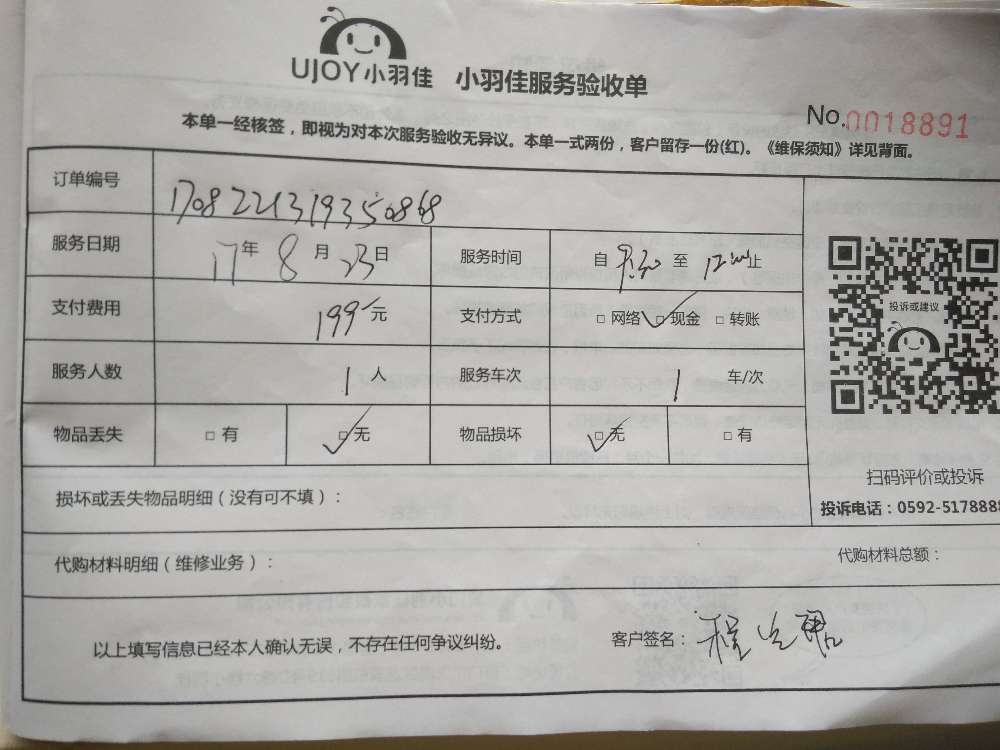 UJOY小羽佳 小羽佳服务验收单
No.0018891
本单一经核签，即视为对本次服务验收无异议。本单一式两份，客户留存一份(红)。《维保须知》详见背面。
订单编号 1708221319350868
服务日期 17年8月23日 服务时间 自 至 止
支付费用 199元 支付方式 □网络 □现金 □转账
服务人数 1人 服务车次 1车/次
物品丢失 □有 □无 物品损坏 □无 □有
投诉或建议
扫码评价或投诉
投诉电话：0592-5178888
损坏或丢失物品明细（没有可不填）：
代购材料明细（维修业务）： 代购材料总额：
以上填写信息已经本人确认无误，不存在任何争议纠纷。 客户签名：程